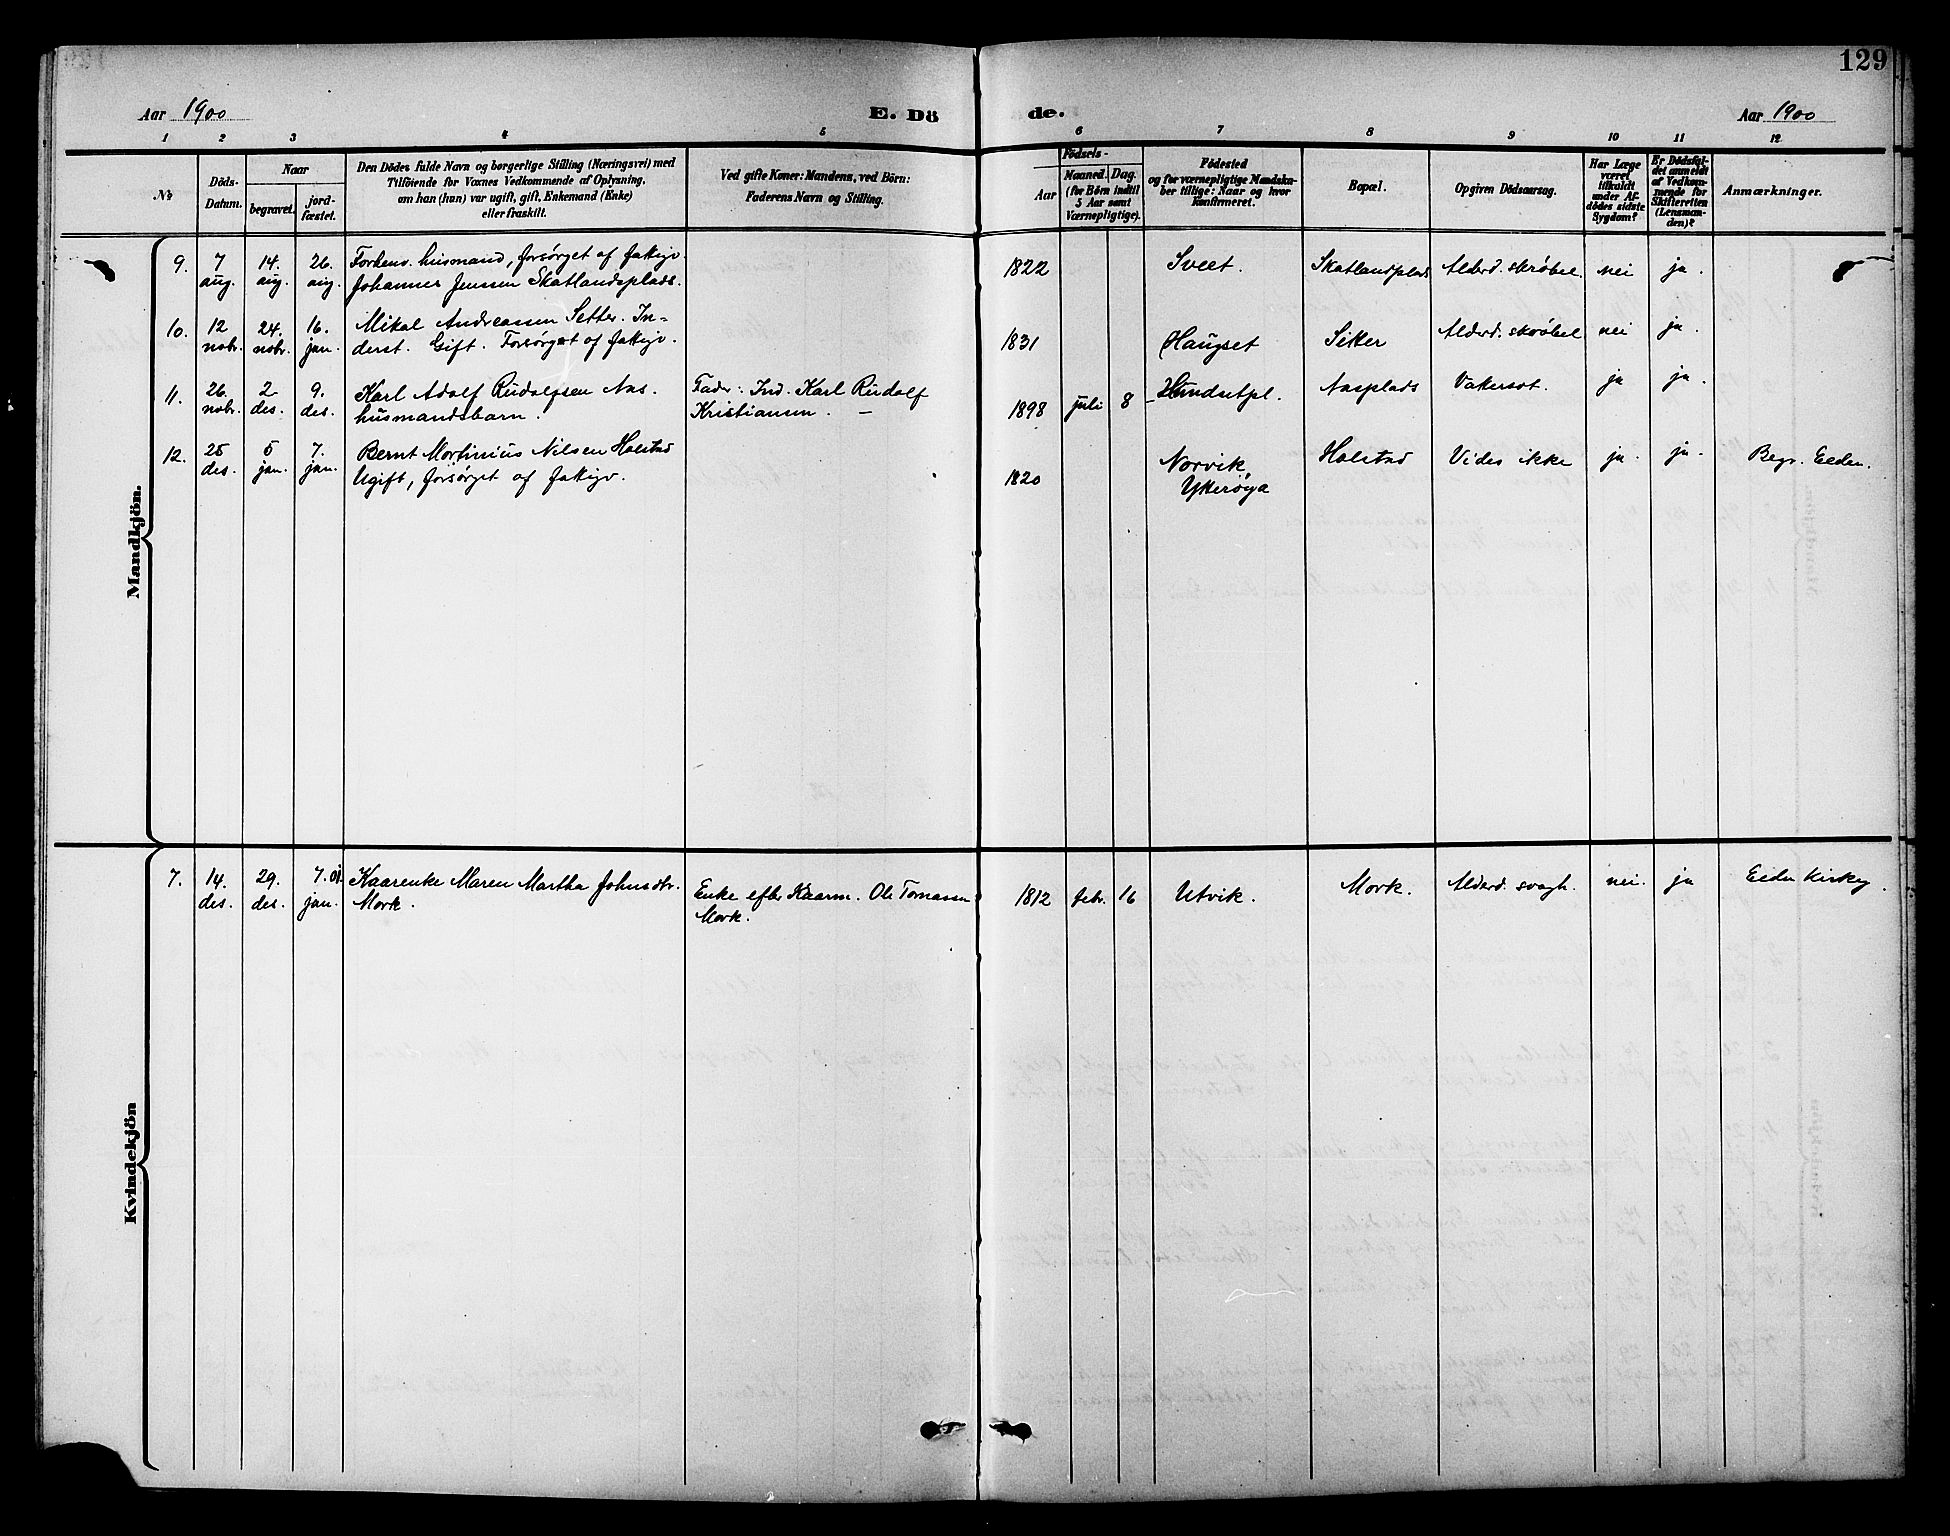 129
Aar 1900
E. Dö
de.
Aar 1900
1 2 3 4 5 6 7 8 9 10 11 12
No
Döds-
Datum.
Naar
begravet.
jord-
fæstet.
Den Dödes fulde Navn og borgerlige Stilling (Næringsvei) med
Tilföiende for Voxnes Vedkommende af Oplysning,
om han (hun) var ugift, gift, Enkemand (Enke)
eller fraskilt.
Ved gifte Koner: Mandens, ved Börn:
Faderens Navn og Stilling.
Födsels-
Aar
Maaned. Dag.
(for Börn indtil
5 Aar samt
Værnepligtige).
Födested
og for værnepligtige Mandska-
ber tillige: Naar og hvor
Konfirmeret.
Bopæl.
Opgiven Dödsaarsag.
Har Læge
været
tilkaldt
under Af-
dödes sidste
Sygdom?
Er Dödsfal-
det anmeldt
af Vedkom-
mende for
Skifteretten
(Lensman-
den)?
Anmærkninger.
Mandkjön.
9. 7 aug. 14. aug. 26. aug. Forhenv. husmand, forsörget af fattigv.
Johannes Jensen Skatlandsplads.
1822 Sveet. Skatlandsplads Alderd. skröbel. nei ja.
10. 12 nobr. 24. nobr. 16. jan. Mikal Andreassen Setter. In-
derst. Gift. Forsörget af fattigv.
1831 Haugset Sitter Alderd. skröbel nei ja.
11. 26. nobr. 2 des. 9. des. Karl Adolf Rudolfsen Aas.
husmandsbarn.
Fader: Ind. Karl Rudolf
Kristiansen. —
1898 juli 8 Aasplads Vattersot. ja ja.
12. 25 des. 5 jan. 7. jan. Bernt Martinius Nilsen Halstad
Ugift, forsörget af fattigv.
1820 Norvik,
Ytteröya
Halstad Vides ikke ja. ja. Begr. Elden.
Kvindekjön
7. 14. des. 29. des. 7. 01. jan. Kaarenke Maren Martha Johnsdtr.
Mork.
Enke efter Kaarm. Ole Tomassen
Mork.
1812 febr. 16 Utvik. Mork. Alderd. svagh. nei. ja Elden Kirkeg.